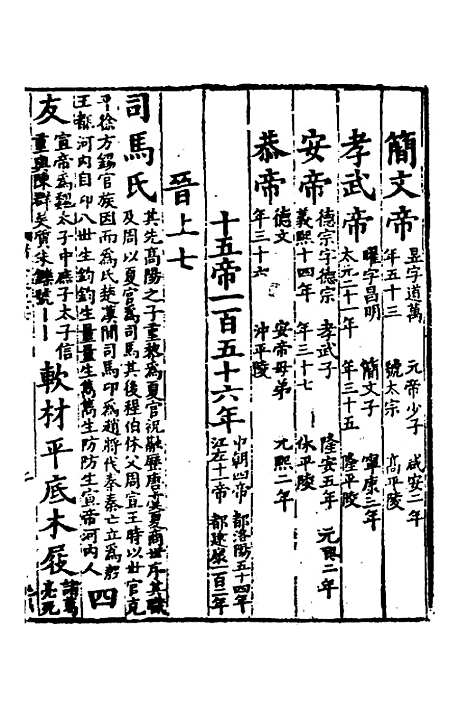 簡文帝 昱字道萬 元帝少子 咸安二年
年五十三 號太宗 高平陵
孝武帝 曜字昌明 簡文子 寧康三年
太元二十一年 年三十五 隆平陵
安帝 德宗字德宗 孝武子 隆安五年 元興二年
義熙十四年 年三十七 休平陵
恭帝 德文 安帝母弟 元熙二年
年三十六 沖平陵
十五帝一百五十六年 中朝四帝 都洛陽五十四年
江左十一帝 都建康一百二年
晉上七
司馬氏 其先高陽之子重黎為夏官祝融歷唐虞夏商世序其職
及周以夏官為司馬其後程伯休父周宣王時以世官克
平徐方錫官族因而為氏楚漢間司馬卬為趙將代秦秦亡立為殷
王都河內自卬八世生鈞鈞生量量生雋雋生防防生宣帝河內人 四
友 宣帝為魏太子中庶子太子信
重與陳群吳質朱鑠號｜｜ 軟材平底木屐 諸葛
亮死